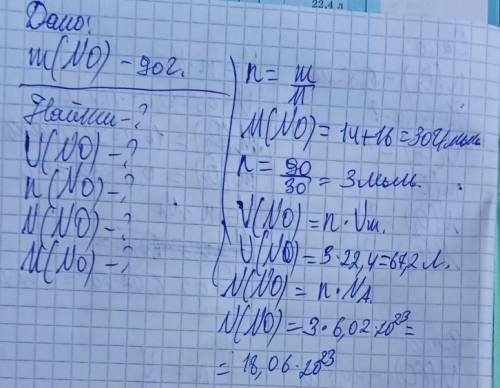 22.4 л
Дано:
m(NO) - 90г.
Найти - ?
V(NO) - ?
n(NO) - ?
N(NO) - ?
M(NO) - ?
n = m/M
M(NO) = 14+16=30г/моль
n = 90/30 = 3 моль.
V(NO) = n · Vm.
V(NO) = 3 · 22,4=67,2 л.
N(NO) = n · NA.
N(NO) = 3 · 6,02 · 10²³ =
= 18,06 · 10²³